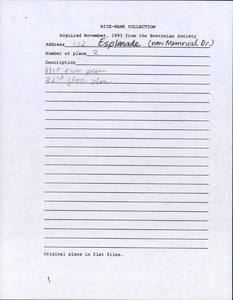 RICE-MARK COLLECTION
Acquired November, 1991 from the Bostonian Society
Address 102 Esplanade (now Memorial Dr.)
Number of plans 2
Description
1) 1st floor plan
2) floor plan
Original plans in flat files.